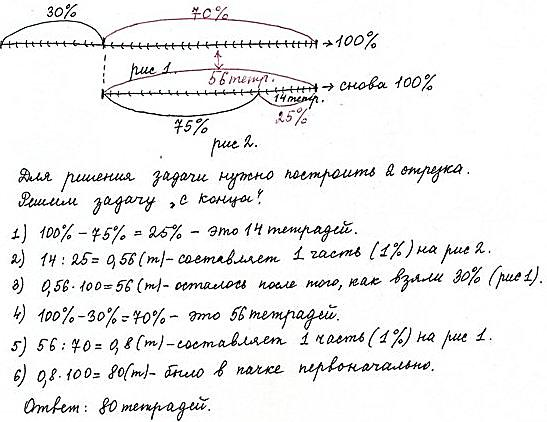 30% 70%
→ 100%
рис 1.
56 тетр. → снова 100%
14 тетр.
75% 25%
рис 2.
Для решения задачи нужно построить 2 отрезка.
Решим задачу „с конца".
1) 100% - 75% = 25% - это 14 тетрадей.
2) 14 : 25 = 0,56 (т) - составляет 1 часть (1%) на рис 2.
3) 0,56 · 100 = 56 (т) - осталось после того, как взяли 30% (рис 1).
4) 100% - 30% = 70% - это 56 тетрадей.
5) 56 : 70 = 0,8 (т) - составляет 1 часть (1%) на рис 1.
6) 0,8 · 100 = 80 (т) - было в пачке первоначально.
Ответ: 80 тетрадей.